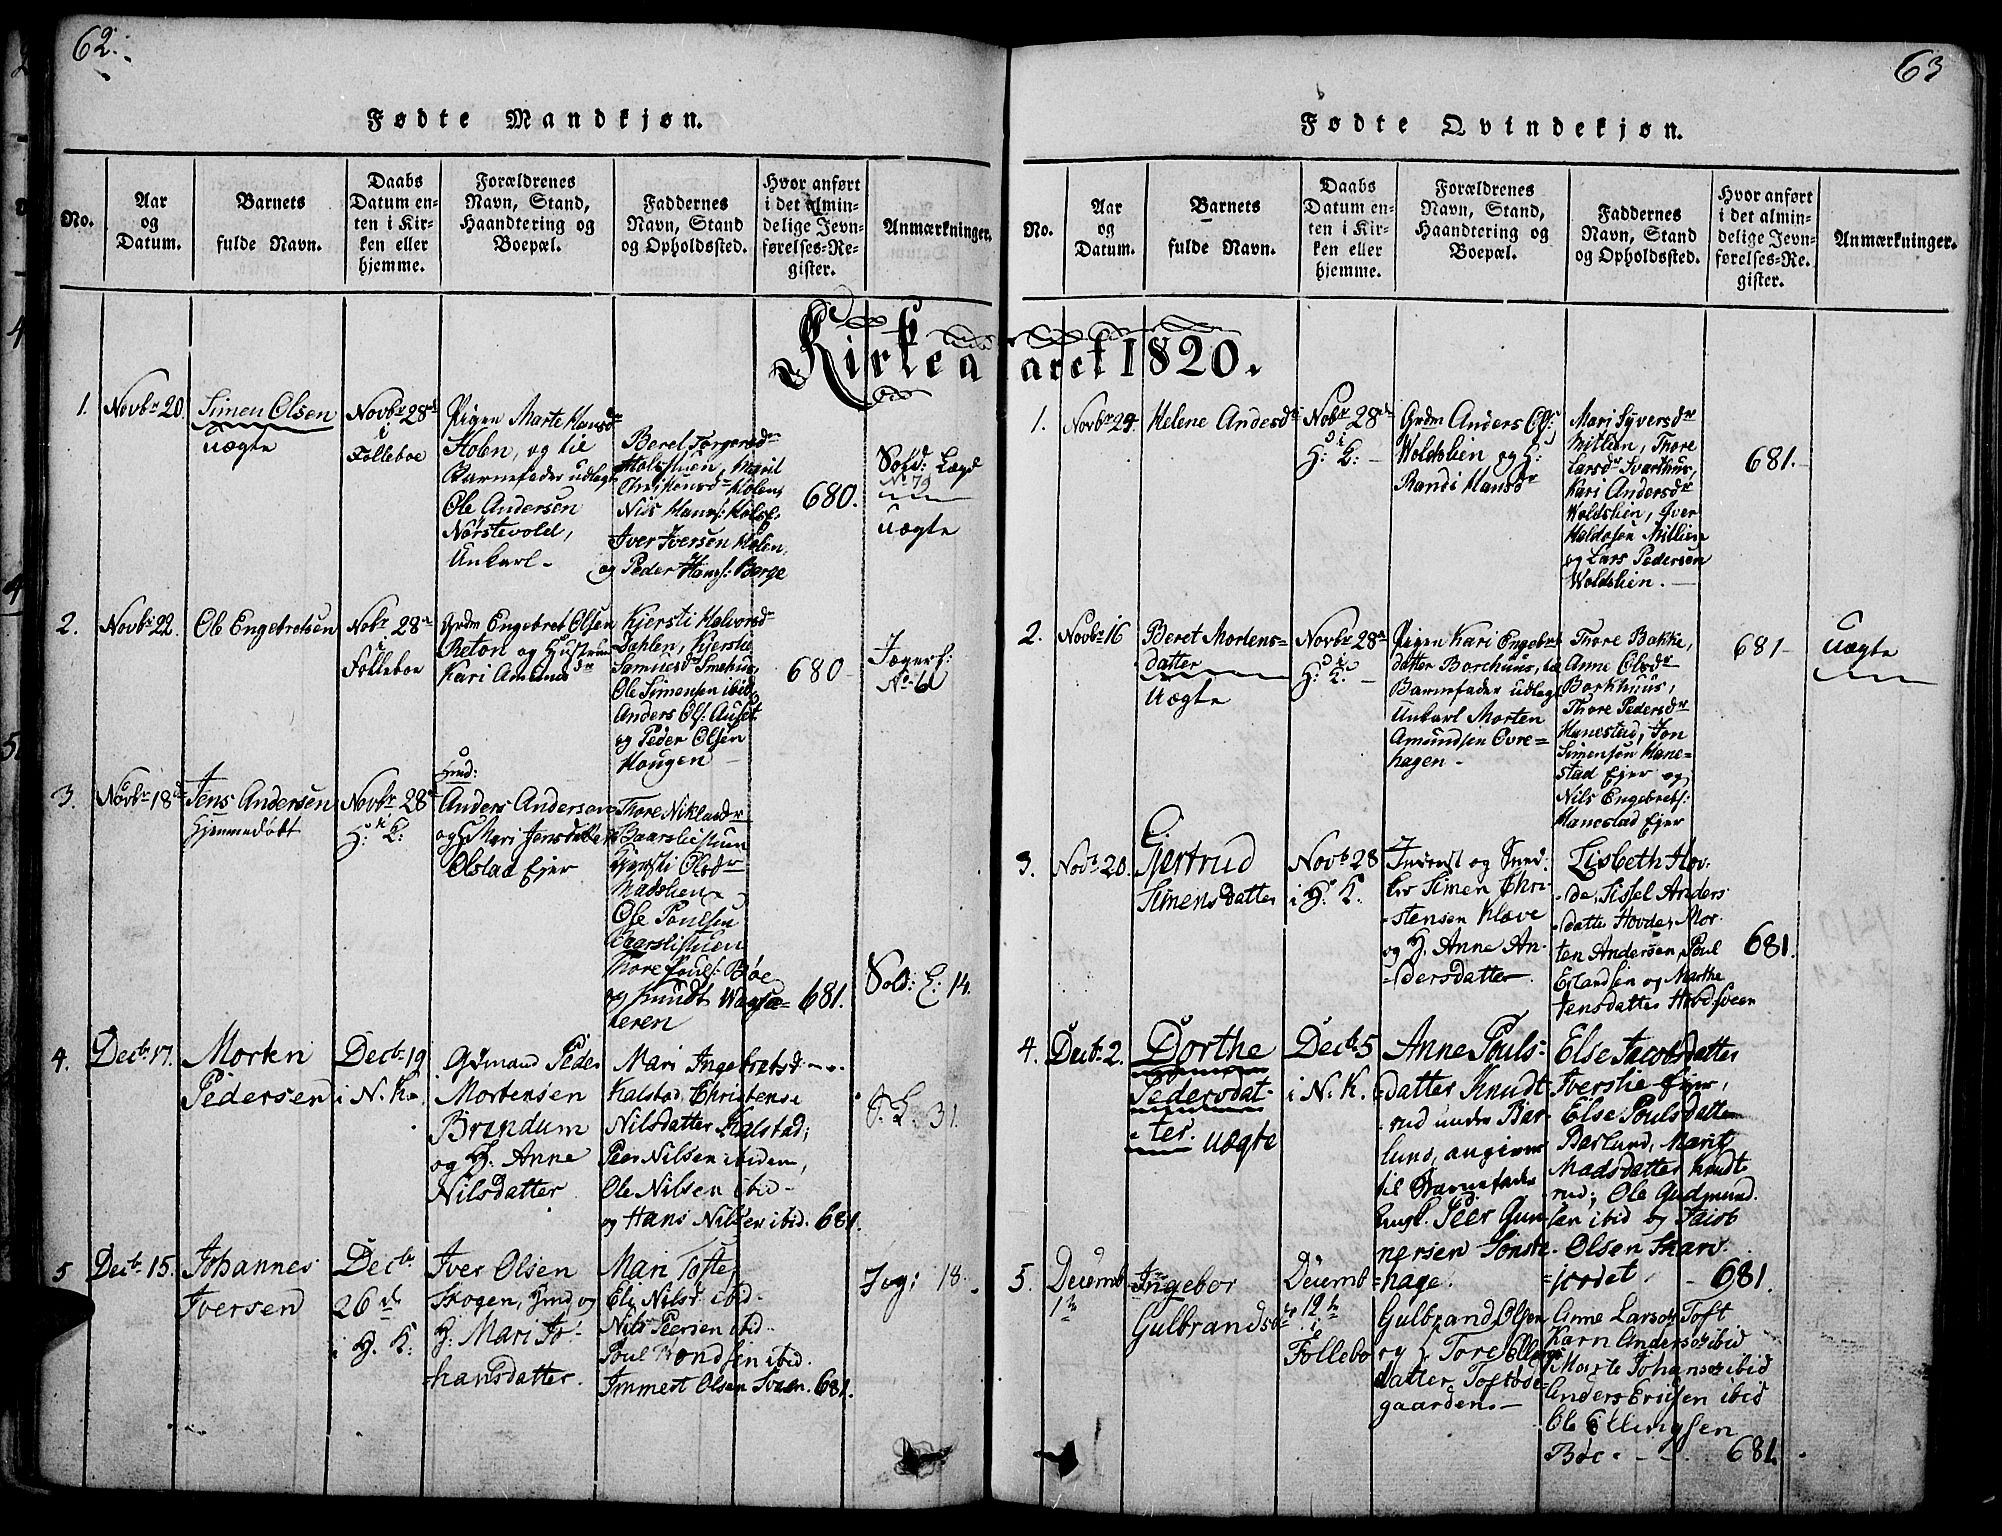 62.
Fødte Mandkjøn.
No.
Aar
og
Datum.
Barnets
fulde Navn.
Daabs
Datum en-
ten i Kir-
ken eller
hjemme.
Forældrenes
Navn, Stand,
Haandtering og
Boepæl.
Faddernes
Navn, Stand
og Opholdssted.
Hvor anført
i det almin-
delige Jevn-
førelses-Re-
gister.
Anmærkninger.
Kirkeaaret 1820.
1.
Novbr 20.
Simen Olsen
uægte
Novbr 28de
i
Folleboe
Pigen Marte Hansdr
Holen, og til
Barnefader udlagt
Ole Andersen
Nørstevold,
Unkarl.
Beret Torgersdr
Holsstuen, Ingril
Christensdr Holen,
Nils Hans: Holst.
Iver Iversen Holen,
og Peder Hans: Berge
680.
Sold: Lægd
No. 79
uægte
2.
Novbr 22.
Ole Engebretsen
Nobr 28de
i
Folleboe
Grdm Engebret Olsen
Reton og Hustrue
Kari Amunds dr
Kjersti Halvorsdr
Dahlen, Kjersti
Samuelsdr Smehus,
Ole Simensen ibid,
Anders Ols: Auset
og Peder Olsen
Hougen
680
Jægerf:
No. 6
3.
Novbr 18de
Jens Andersen
Hjemmedøbt
Novbr 28de
i
H: K:
Hmd:
Anders Andersen
og H: Mari Jensdatter
Olstad Ejer
Thore Niklasdr
Baarslistuen
Kjersti Olsdr
Madslien
Ole Poulsen
Baarslistuen
Thore Pouls: Bøe
og Knudt Wangsæ-
teren
681.
Sold: L: 14.
4.
Decbr 17.
Morten
Pedersen
Decbr 19
i N. K.
Gdmand Peder
Mortensen
Brændum
og H. Anne
Nilsdatter
Mari Ingebretsd
Kalstad, Christense
Nilsdatter Kalstad;
Peer Nilsen ibidem,
Ole Nilsen ibid
og Hans Nilsen ibid. 681.
S: L: 31.
5
Decbr 15.
Johannes
Iversen
Decbr
26de
i H. K:
Iver Olsen
Skogen, Hmd og
H: Mari Jo-
hansdatter.
Mari Tofte,
Eli Nilsd: ibid.
Nils Peersen ibid.
Poul Trondsen ibid.
Immert Olsen Sveen. 681.
Jeg: 18.
63
Fødte Qvindekjøn.
No.
Aar
og
Datum.
Barnets
fulde Navn.
Daabs
Datum en-
ten i Kir-
ken eller
hjemme.
Forældrenes
Navn, Stand,
Haandtering og
Boepæl.
Faddernes
Navn, Stand
og Opholdssted.
Hvor anført
i det almin-
delige Jevn-
førelses-Re-
gister.
Anmærkninger.
1.
Novbr 24.
Helene Andersdr
Nobr 28de
i
H: K:
Grdm Anders Ols:
Woldslien og H:
Randi Hansdr
Mari Syversdr
Millien, Thore
Larsdr Svarthus,
Kari Andersdr
Woldslien, Iver
Haldosen Millien
og Lars Pedersen
Woldslien.
681.
2.
Novbr 16
Beret Mortens-
datter
Uægte
Novbr 28de
i
H: K:
Pigen Kari Engebrets
datter Borchuus, til
Barnefader udlagt
Unkarl Morten
Amundsen Øvre-
hagen
Thore Bakke,
Anne Olsdr
Borkhuus,
Thore Pedersdr
Hanestad, Jon
Simensen Hane-
stad Ejer og
Nils Engebrets:
Hanestad Ejer
681
Uægte
3.
Novbr 20.
Gjertrud
Simensdatter
Novbr 28
i H. K.
Inderst og Sned-
ker Simen Chri-
stensen Klæve
og H. Anne An-
dersdatter
Lisbeth Hov-
de, Sissel Anders
datter Hovde, Mor-
ten Andersen, Poul
Erlandsen og Marthe
Jensdatter Hovdsveen
681.
4.
Decbr 2.
Dorthe
Pedersdat-
ter. uægte
Decbr 5
i N. K.
Anne Pouls-
datter Knudt-
rud under Bør-
lund, angiver
til Barnefader
Ungk. Peer Gun-
nersen Sonste-
hage.
Else Jacobsdatter
Iverslie Ejer,
Else Poulsdatter
Børlund, Marit
Madsdatter Knudt-
rud; Ole Gudmund-
sen ibid og Jacob
Olsen Skarv-
jordet
681.
5.
Decemb
1te
Ingebor
Gulbrandsdr
Decemb
12te
i
Follebo
Gulbrand Olsen
og H Tore Ellings
datter Toftøde-
gaarden.
Anne Larsdr Toft
Karn Andersdr ibid
Marte Johansdr ibid
Anders Ericsen ibid
Ole Ellingsen
Bøe
681.